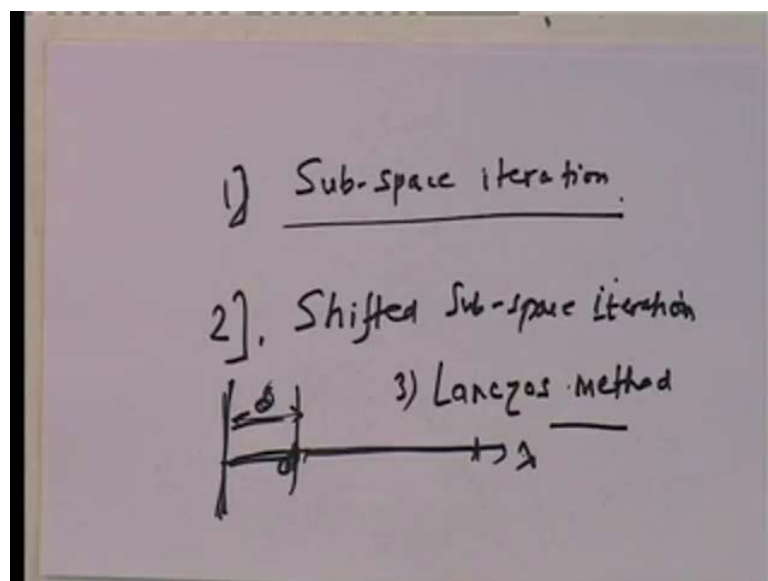 1] Sub-space iteration.
2]. Shifted Sub-space iteration
3) Lanczos method
λ